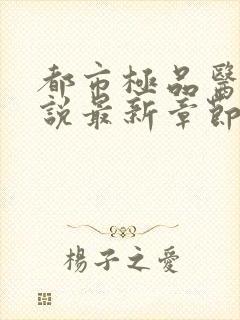 都市極品醫
說最新章節
楊子之愛